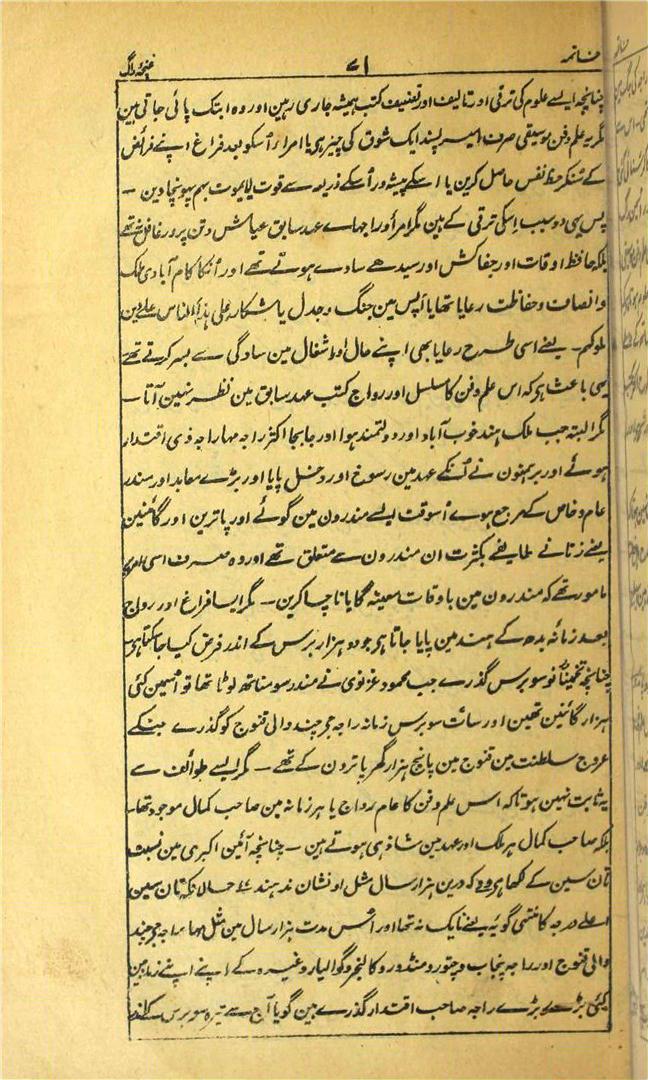 خاتمہ ۷۱ غنچۂ راگ
چنانچہ ایسے علوم کی ترقی اور تالیف اور تصنیف کتب ہمیشہ جاری رہین اور وہ ابتک پائی جاتی ہین
مگر یہ علم و فن موسیقی صرف امیر پسند ایک شوق کی چیز ہی یا امراء اُسکو بعد فراغ اپنے فرائض
کے سُنکر حظ نفس حاصل کرین یا اسکے پیشہ ور اُسکے ذریعہ سے قوت لایموت بہم پہونچا دین ۔
پس یہی دو سبب اِسکی ترقی کے ہین مگر امرا و راجہاے عہد سابق عیاش و تن پرور غافل نتھے
بلکہ حافظ اوقات اور جفاکش اور سیدھے سادے ہوتے تھے اور اُنکا کام آبادی ملک
و انصاف و حفاظت رعایا تھا یا آپس مین جنگ و جدل یا شکار علی ہذا الناس علے دین
ملوکہم ۔ یعنے اسی طرح رعایا بھی اپنے حال اور اشغال مین سادگی سے بسر کرتے تھے
یہی باعث ہی کہ اس علم و فن کا سلسل اور رواج کتب عہد سابق مین نظر نہین آتا ۔
مگر البتہ جب ملک ہند خوب آباد اور دولتمند ہوا اور جابجا اکثر راجہ مہاراجہ ذی اقتدار
ہوئے اور برہمنون نے اُنکے عہد مین رسوخ اور دخل پایا اور بڑے معابد اور مندر
عام و خاص کے مرجع ہوے اُسوقت ایسے مندرون مین گوئے اور پاترین اور گائنین
یعنے زنانے طایفے بکثرت ان مندرون سے متعلق تھے اور وہ صرف اسی
مامور تھے کہ مندرون مین باوقات معینہ گایا ناچا کرین ۔ مگر ایسا فراغ اور رواج
بعد زمانہ بدھ کے ہند مین پایا جاتا ہی جو دو ہزار برس کے اندر فرض کیا جا سکتا ہی
چنانچہ تخمیناً نو سو برس گذرے جب محمود غزنوی نے مندر سومناتھ لوٹا تھا تو اُسمین کئی
ہزار گائنین تھین اور سات سو برس زمانہ راجہ جے چند والی قنوج کو گذرے جنکے
عروج سلطنت مین قنوج مین پانچ ہزار گھر پاترون کے تھے ۔ مگر ایسے طوائف سے
یہ ثابت نہین ہوتا کہ اس علم و فن کا عام رواج یا ہر زمانہ مین صاحب کمال موجود تھا۔
بلکہ صاحب کمال ہر ملک اور عہد مین شاذ ہی ہوتے ہین ۔ چنانچہ آئین اکبری مین نسبت
تان سین کے لکھا ہی کہ درین ہزار سال مثل او نشان ندہند حالانکہ تان سین
اعلے درجہ کا منتہی گویہ یعنے نایک نہ تھا اور اُس مدت ہزار سال مین مثل مہاراجہ جے چند
والی قنوج اور راجہ پنجاب و چتور و مندور و کالنجر و گوالیار وغیرہ کے اپنے اپنے زمانہ مین
کئی بڑے بڑے راجہ صاحب اقتدار گذرے ہین گویا آج سے تیرہ سو برس کے اندر